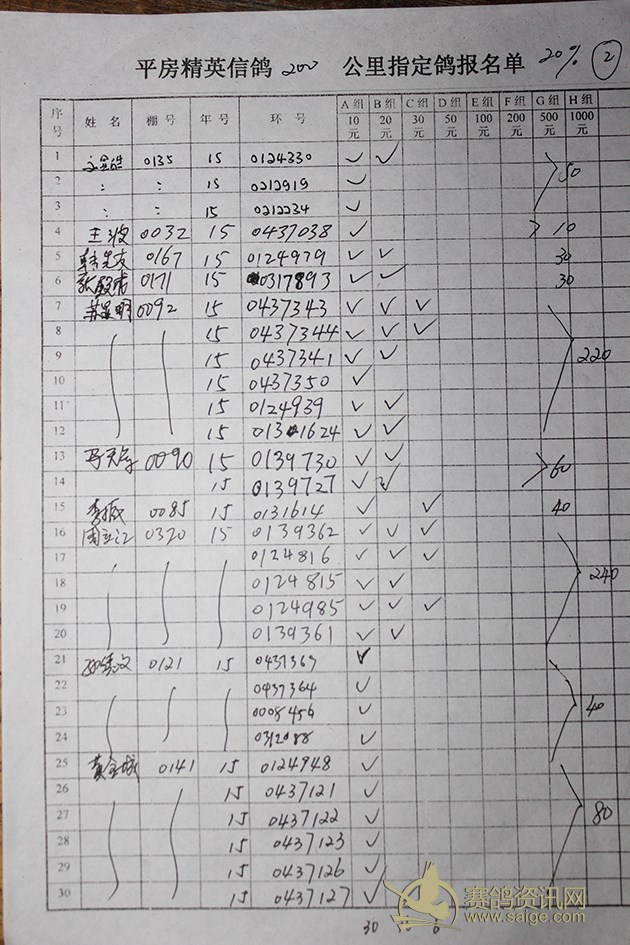 平房精英信鸽 200 公里指定鸽报名单 20% ②
序号 姓名 棚号 年号 环号 A组 10元 B组 20元 C组 30元 D组 50元 E组 100元 F组 200元 G组 500元 H组 1000元
1 0135 15 0124330 ✓ ✓
2 : : 15 0212919 ✓ 50
3 15 0212234 ✓
4 王波 0032 15 0437038 ✓ 10
5 0167 15 0124979 ✓ ✓ 30
6 0171 15 0317893 ✓ ✓ 30
7 0092 15 0437343 ✓ ✓ ✓
8 15 0437344 ✓ ✓ ✓
9 15 0437341 ✓ ✓ 220
10 15 0437350 ✓
11 15 0124939 ✓ ✓
12 15 0131624 ✓ ✓
13 0090 15 0139730 ✓ ✓
14 15 0139727 ✓ ✓ 60
15 李振 0085 15 0131614 ✓ ✓ 40
16 周立江 0320 15 0139362 ✓ ✓ ✓
17 0124816 ✓ ✓ ✓
18 0124815 ✓ ✓ 240
19 0124985 ✓ ✓ ✓
20 0139361 ✓ ✓
21 0121 15 0437369 ✓
22 0437364 ✓
23 0008456 ✓ 40
24 0312088 ✓
25 黄金城 0141 15 0124948 ✓
26 15 0437121 ✓
27 15 0437122 ✓ 80
28 15 0437123 ✓
29 15 0437126 ✓
30 15 0437127 ✓
30 6
赛鸽资讯网
www.saige.com